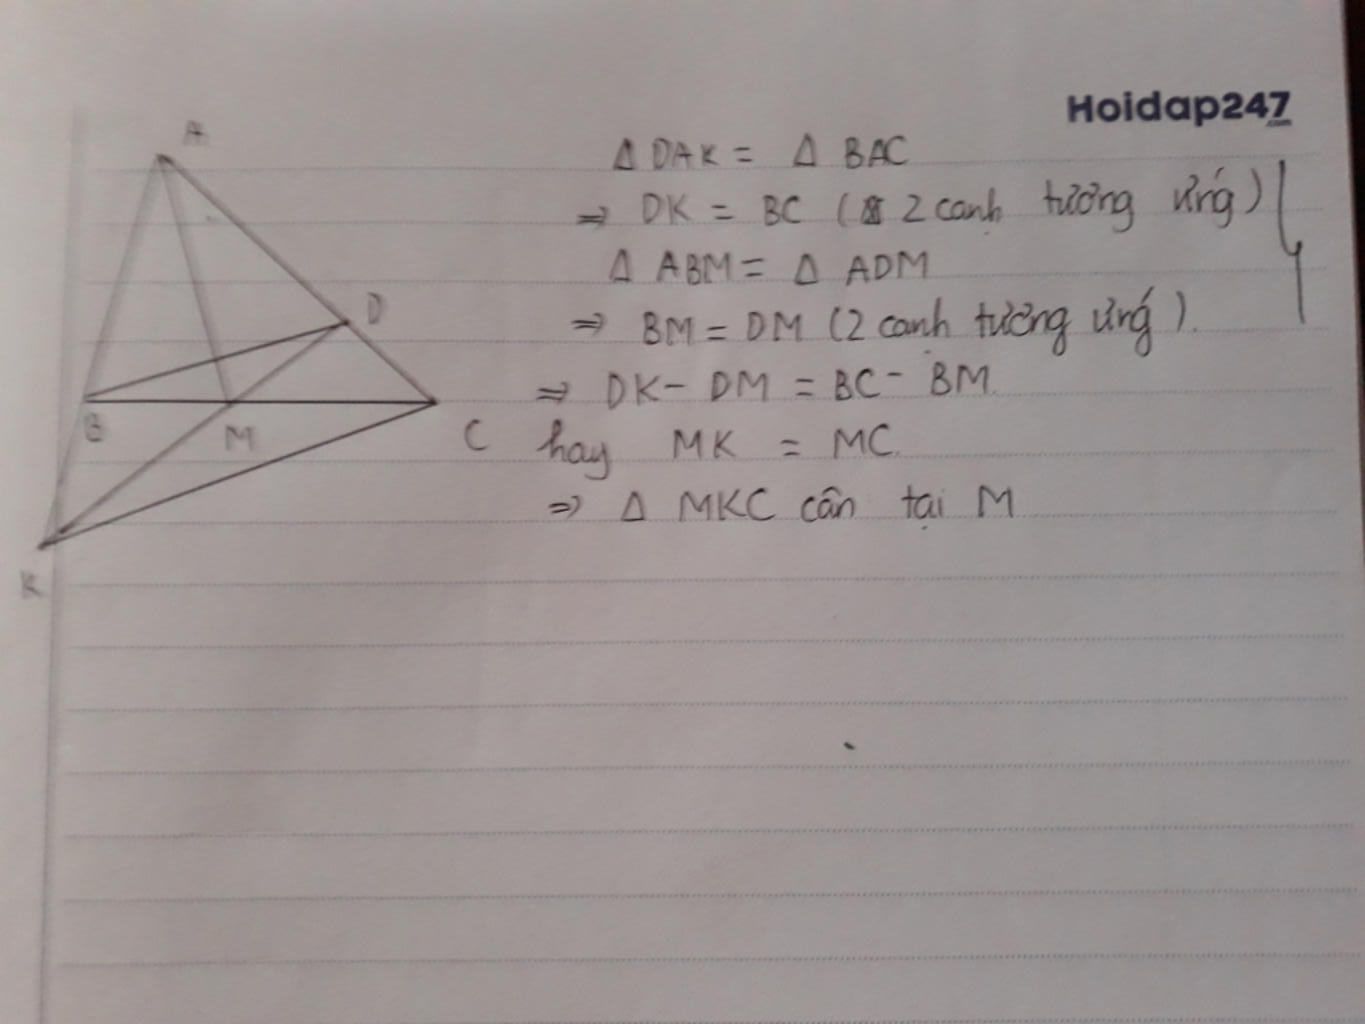 Hoidap247
.com
A
D
B
M
C
K
Δ DAK = Δ BAC
⇒ DK = BC ( 2 cạnh tương ứng )
Δ ABM = Δ ADM
⇒ BM = DM ( 2 cạnh tương ứng ).
⇒ DK - DM = BC - BM.
hay MK = MC.
⇒ Δ MKC cân tại M